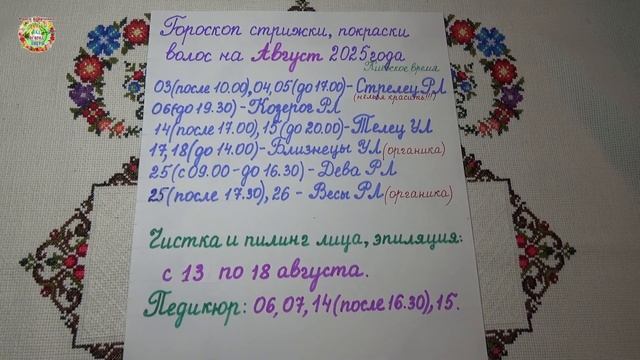 Гороскоп стрижки, покраски
волос на Август 2025 года
Киевское время
03(после 10.00), 04, 05(до 17.00) - Стрелец РЛ
(нельзя красить!!!)
06(до 19.30) - Козерог РЛ
14(после 17.00), 15(до 20.00) - Телец УЛ
17, 18(до 14.00) - Близнецы УЛ (органика)
25(с 09.00 - до 16.30) - Дева РЛ
25(после 17.30), 26 - Весы РЛ (органика)
Чистка и пилинг лица, эпиляция:
с 13 по 18 августа.
Педикюр: 06, 07, 14(после 16.30), 15.